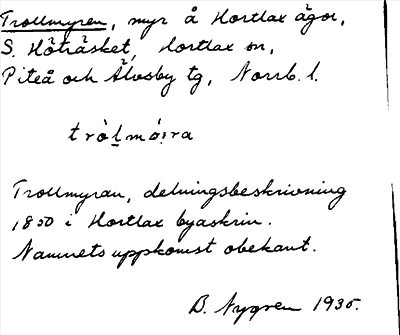 Trollmyren, myr å Hortlax ägor,
S. Höträsket, Hortlax sn,
Piteå och Älvsby tg, Norrb. l.
tròl̲mó:ra
Trollmyran, delningsbeskrivning
1850 i Hortlax byaskrin.
Namnets uppkomst obekant.
B. Nygren 1935.